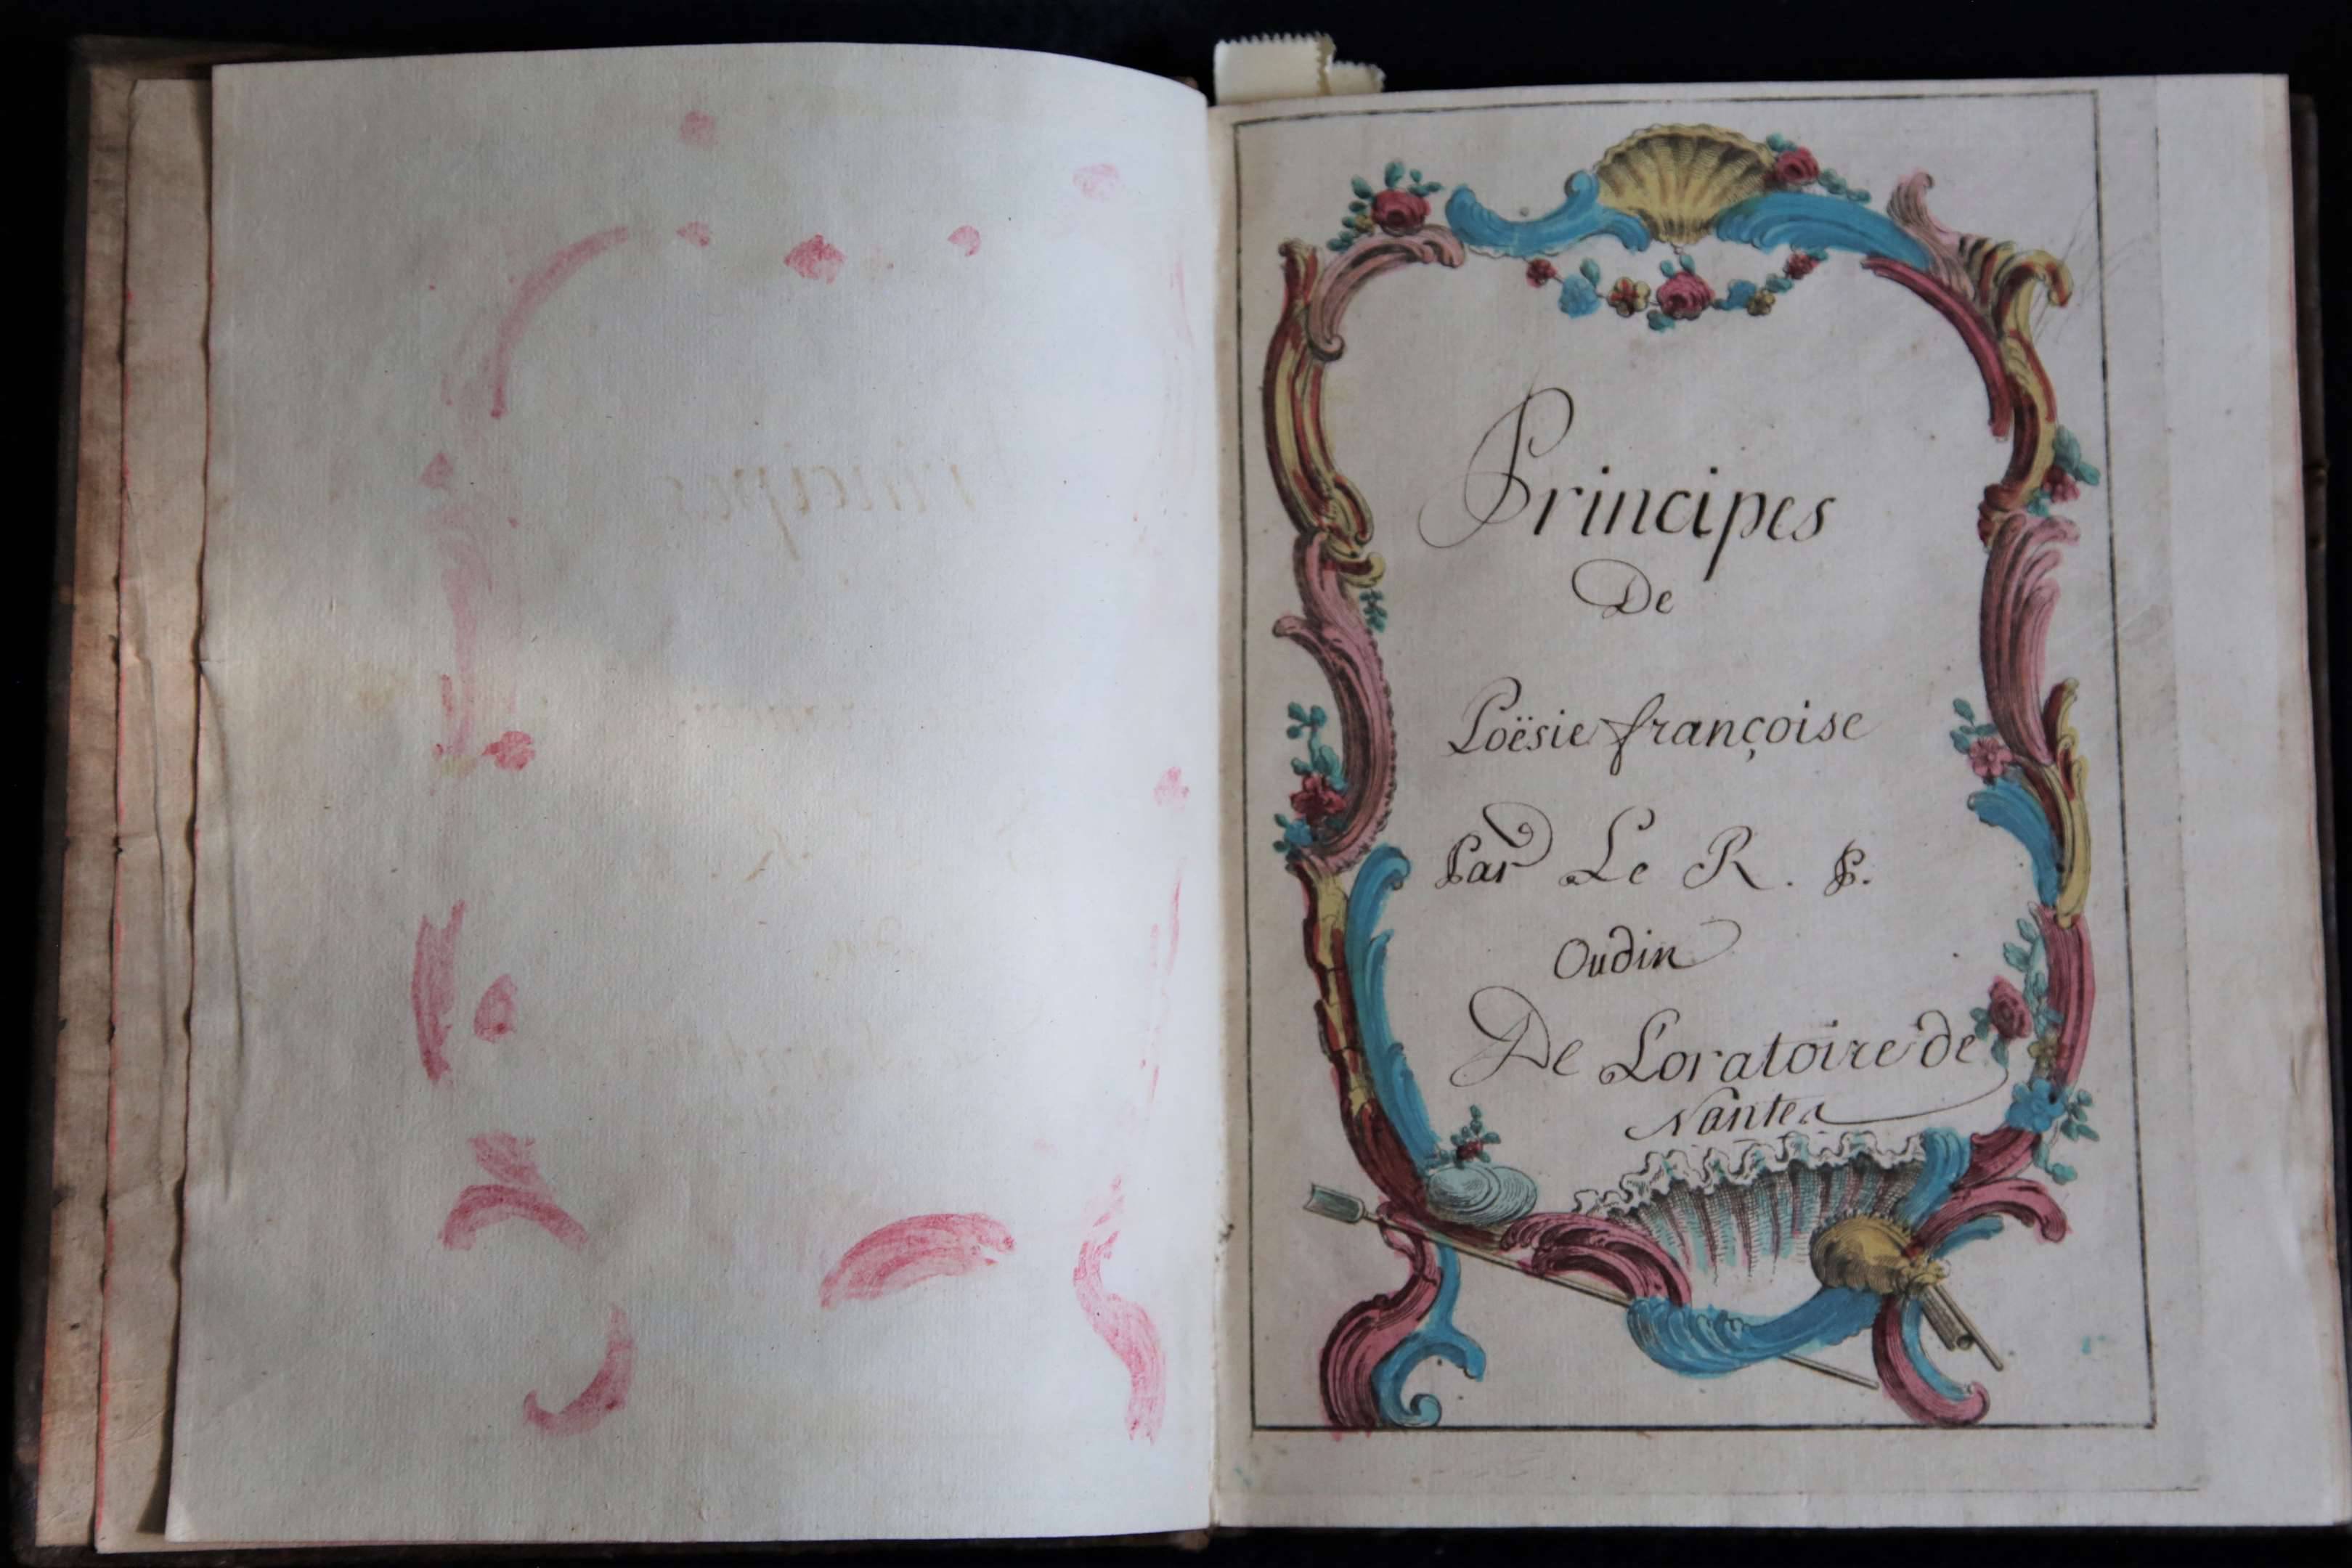 Principes
De
Poësie françoise
Par Le R. P.
Oudin
De L'oratoire de
Nantes